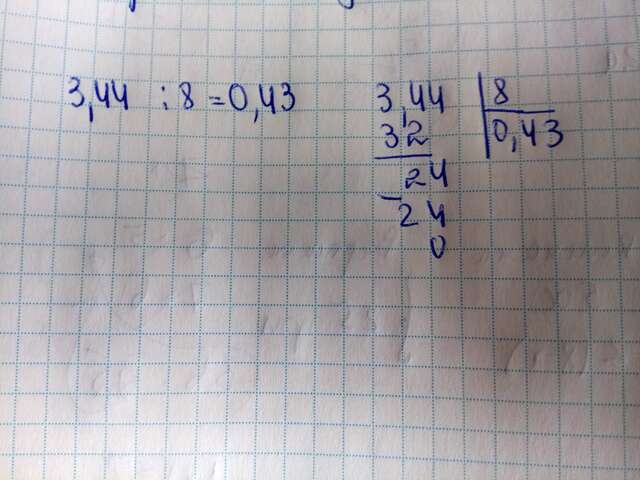 3,44 : 8 = 0,43
3,44 | 8
32 | 0,43
24
- 24
0